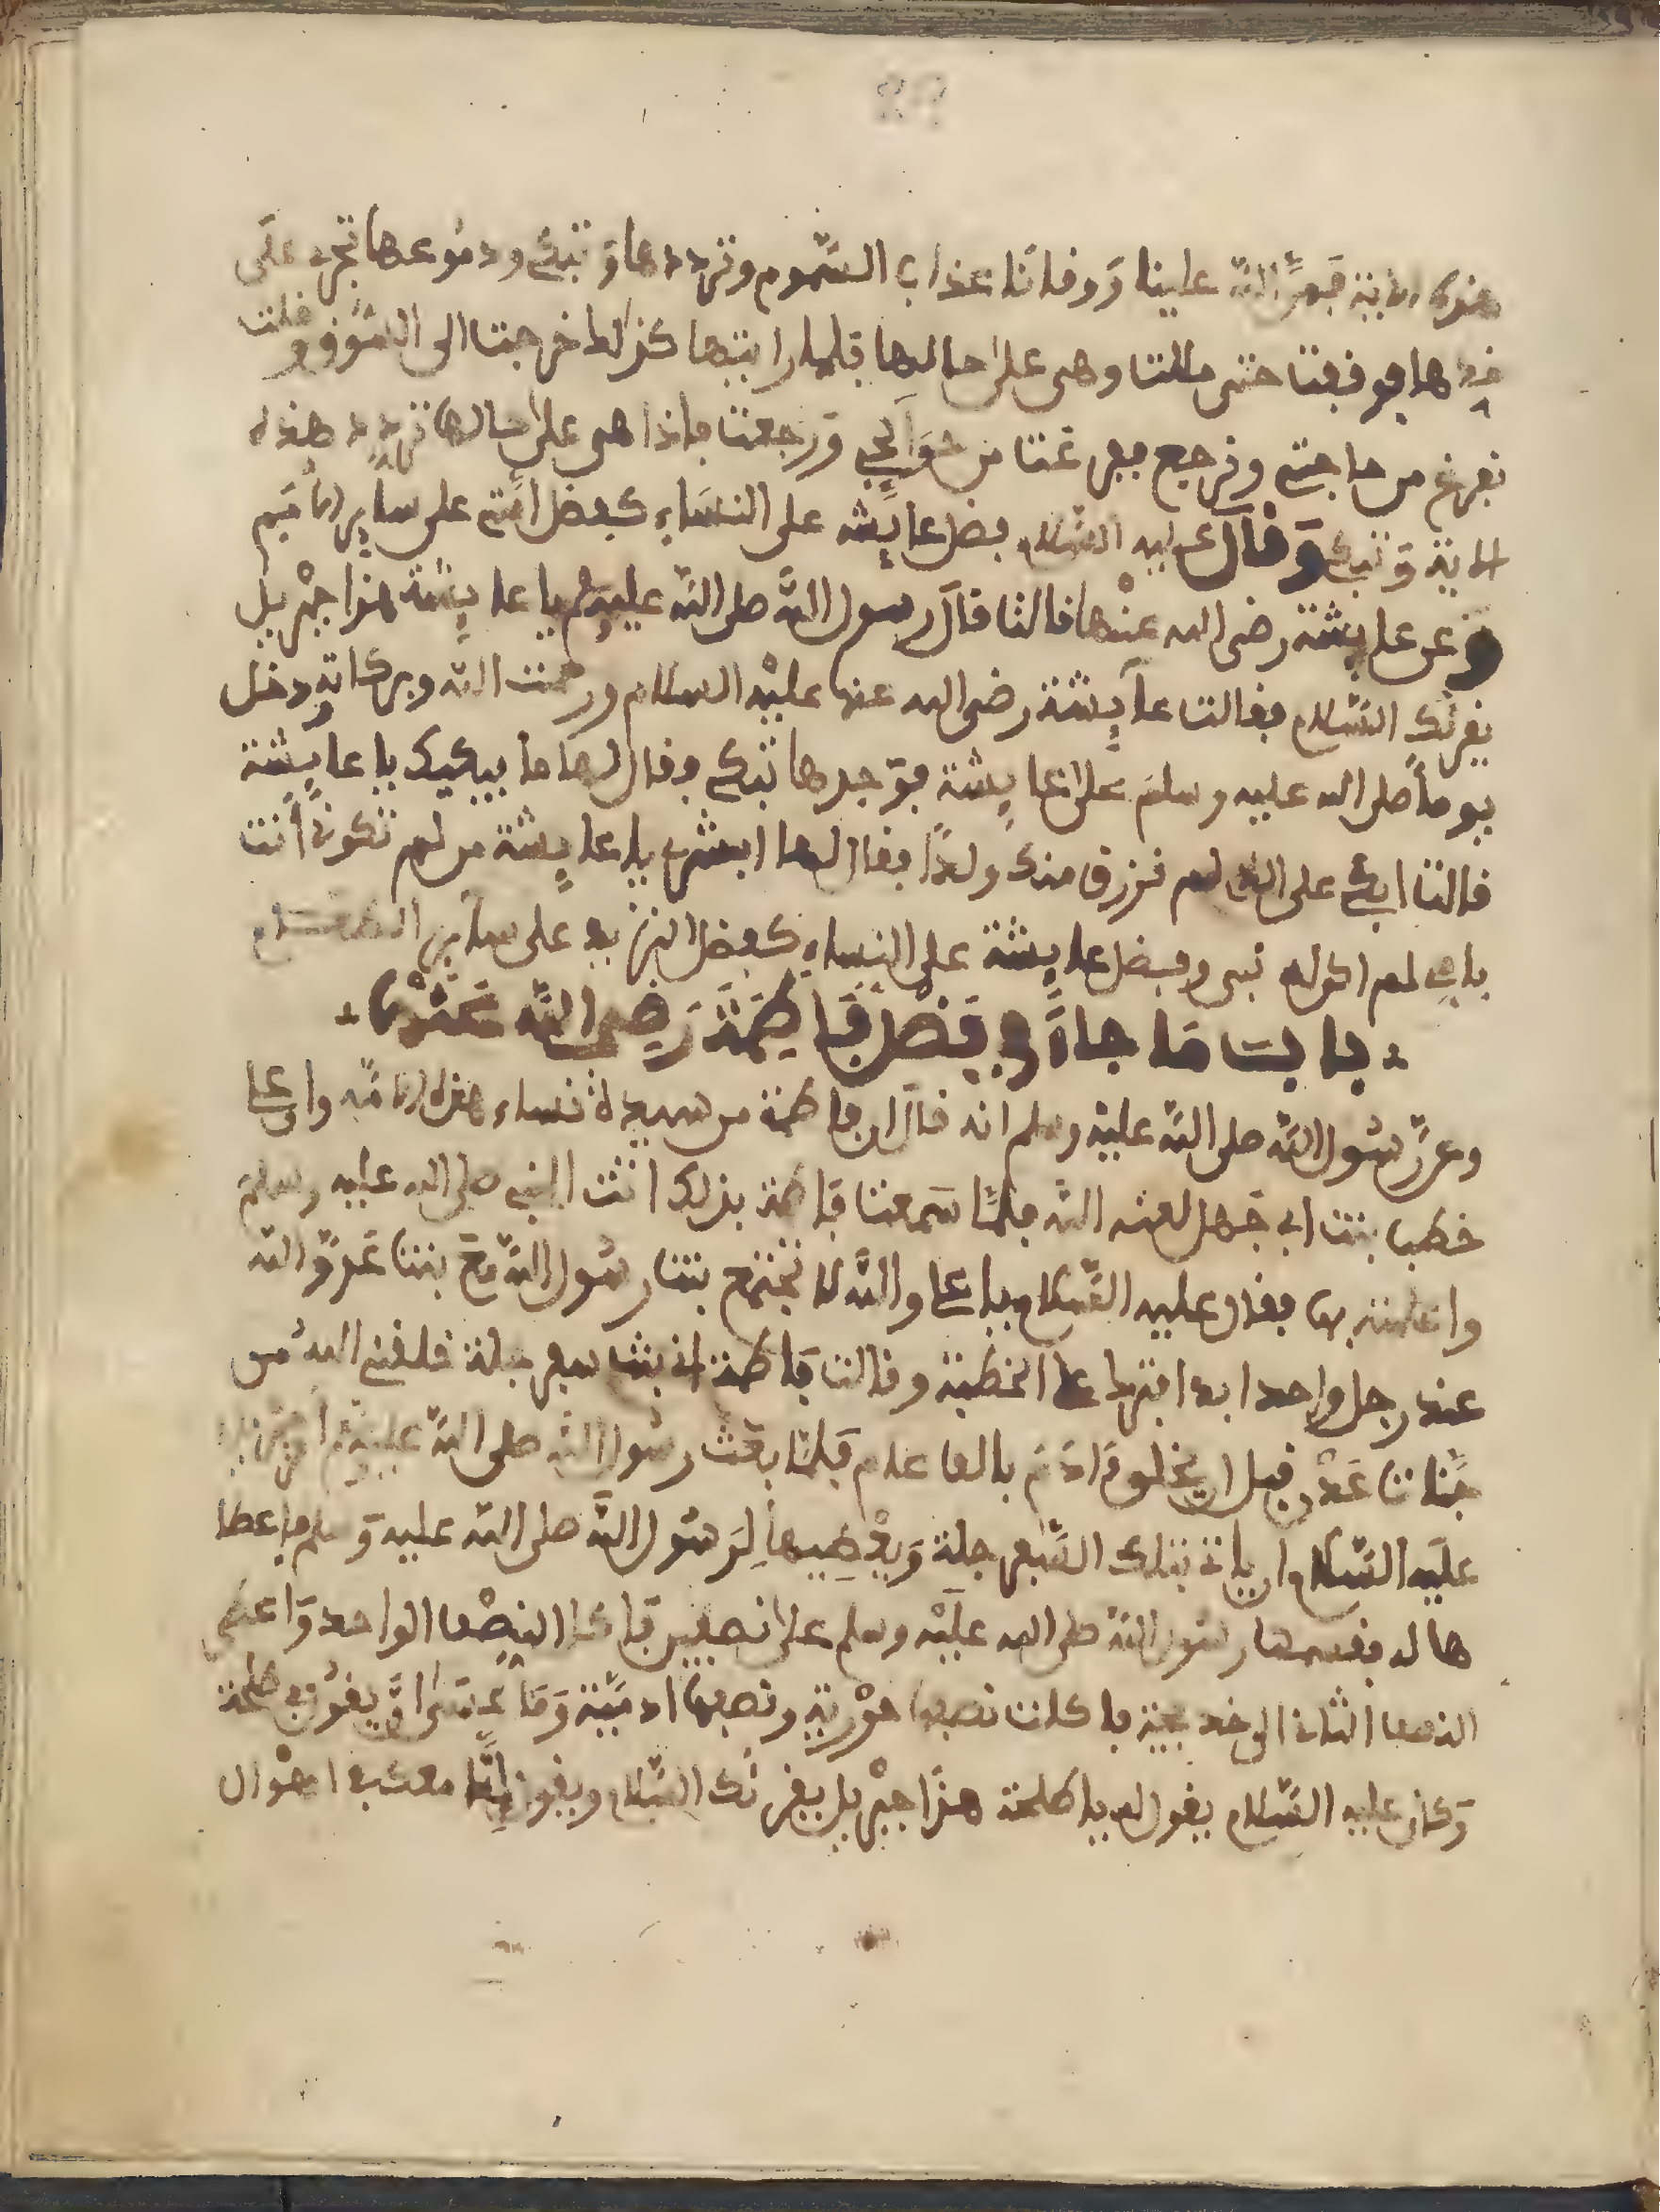 هذه الاية فمنّ الله علينا ووقانا عذاب السّموم وترددها وتبكي ودموعها تجري على
خدها فوقفت حتى مللت وهي على حالها فلما رايتها كذلك خرجت الى السّوق وقلت
نفرغ من حاجتي ونرجع ففرغت من حوآيجي ورجعت فاذا هي على حالها تردد هذه
الاية وتبكي وقال عليه السّلام فضل عايشة على النساء كفضل امّتي على ساير الامم
وعن عايشة رضي الله عنها قالت قال رسول الله صلى الله عليه وسلم يا عايشة هذا جبْريل
يقرئك السّلام فقالت عآيشة رضي الله عنها عليْه السلام ورحمت الله وبركاته ودخل
يوماً صلى الله عليه وسلم على عايشة فوجدها تبكي فقال لها ما يبكيك يا عايشة
قالت ابكي على اني لم نرزق منك ولداً فقال لها ابشري يا عايشة من لم تكوني أنت
بامه لم اكن له نبي وفضل عايشة على النساء كفضل الثريد على سآير الطعام
باب ما جاء في فضْل فاطمة رضي الله عنْها
وعن رّسول الله صلى الله عليه وسلم انه قال ان فاطمة من سيدة نساء هذه الامّة وان علي
خطب بنت ابي جهل لعنه الله فلمّا سمعت فاطمة بذلك اتت النبي صلى الله عليه وسلم
واعلمته بها فقال عليه السّلام يا علي والله لا تجتمع بنت رسول الله مع بنت عدوّ الله
عند رجل واحد ابدا فترك علي الخطبة وقالت فاطمة اني بنت سفرجلة خلقني الله من
جنّات عدْن قبل ان يخلق ءادم بالف عام فلمّا بعث رسول الله صلى الله عليه وسلم أمر جبْريل
عليه السّلام ان ياتي بتلك السّفرجلة ويعْطيها لرسول الله صلى الله عليه وسلم فاعطا
ها له فقسمها رسول الله صلى الله عليْه وسلم على نصفين فاكل النصْف الواحد واعطى
النصف الثاني الى خديجة فكانت نصفها حوْرية ونصفها ادميّة وما عسى أن يقول في طلحة
وكان عليه السّلام يقول له يا طلحة هذا جبْريل يقرئك السّلام ويقول إنّا معك في اهْوال